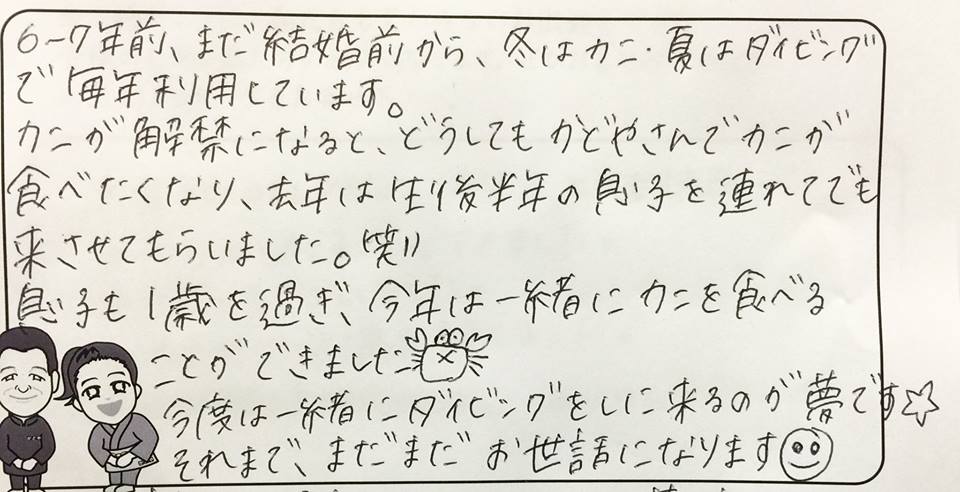 6~7年前、まだ結婚前から、冬はカニ・夏はダイビング
で毎年利用しています。
カニが解禁になると、どうしてもかどやさんでカニが
食べたくなり、去年は生後半年の息子を連れてでも
来させてもらいました。(笑)
息子も1歳を過ぎ、今年は一緒にカニを食べる
ことができました
今度は一緒にダイビングをしに来るのが夢です☆
それまで、まだまだお世話になります